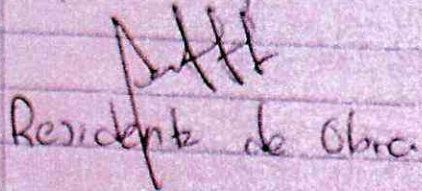 Residente de Obra.